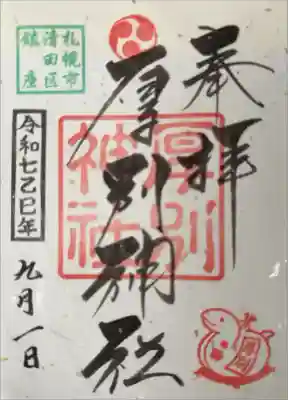 奉拝
厚別神社
厚別神社
札幌市
清田区
鎮座
令和七乙巳年
九月一日